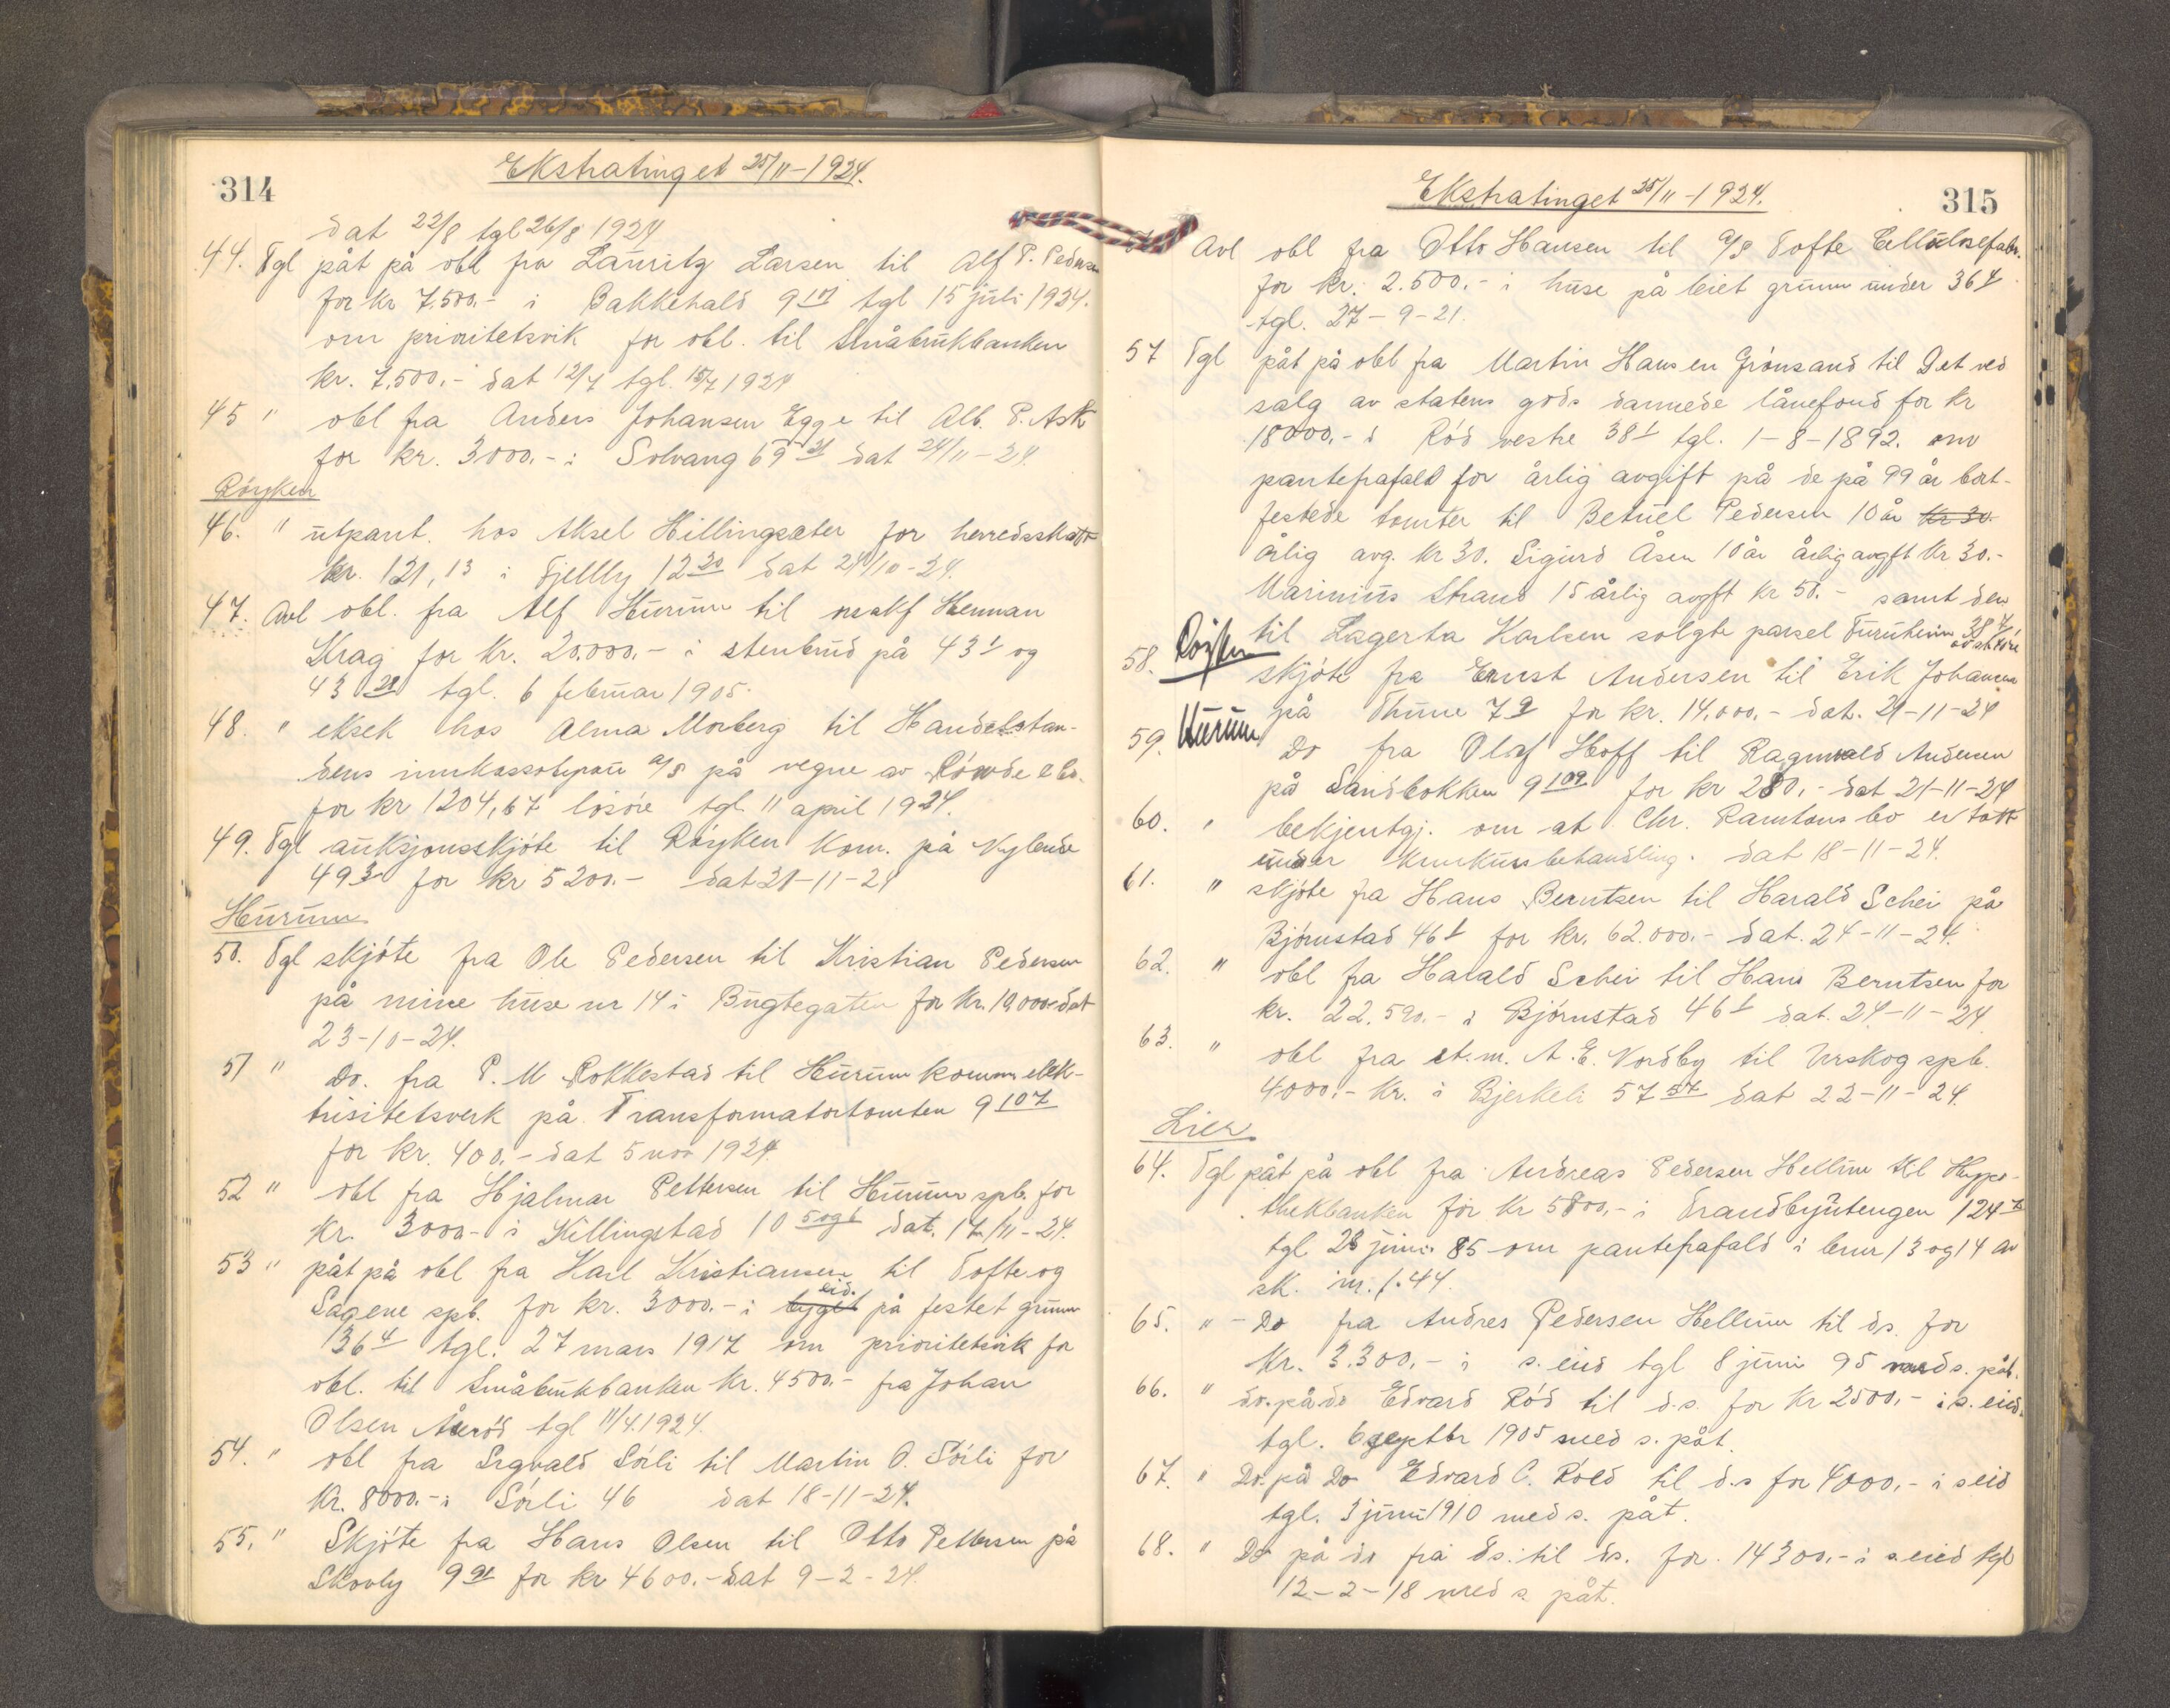 314
Ekstratinget 25/11-1924.
dat 22/8 tgl 26/8 1924
44. Tgl påt på obl fra Lauritz Larsen til Alf P. Pedersen
for kr 7.500.- i Bakkehald 9 tgl 15 juli 1924.
om prioritetsvik for obl. til Småbrukbanken
kr. 7.500.- dat 12/7 tgl. 15/7 1924
45 " obl fra Anders Johansen Egge til Alb. P. Ask
for kr. 3000.- i Solvang 69 dat 24/11-24.
Röyken
46. " utpant. hos Aksel Hillingsæter for herredsskatt
kr. 121,13 i Fjellby 12 20 dat 24/10-24.
47. Avl obl. fra Alf Hurum til Herman
Krag for kr. 20.000.- i stenbrud på 43 1 og
43 21 tgl. 6 februar 1905.
48. " eksek hos Alma Morberg til Handelsstan-
dens inkassobyrau a/s på vegne av & Co.
for kr 1204,67 lösöre tgl 11 april 1924.
49. Tgl auksjonsskjöte til Röyken Kom. på Nylende
49 3 for kr 5200.- dat 21-11-24
Hurum
50. Tgl skjöte fra Ole Pedersen til Kristian Pedersen
på mine huse nr 14 i Bugtegaten for kr. 19000.- dat
23-10-24.
51 " Do. fra P. M Rokkestad til Hurum komm. elek-
trisitetsverk på Transformatortomten 9 107
for kr. 400.- dat 5 nov 1924.
52 " obl fra Hjalmar Pettersen til Hurum spb. for
kr. 3000.- i Killingstad 10 5 og 6 dat. 14/11-24.
53 " påt på obl fra Karl Kristiansen til Tofte og
Sagene spb. for kr. 3000.- i bygget eid. på festet grunn
36 4 tgl. 27 mars 1917 om prioritetsvik for
obl. til Småbrukbanken kr. 4500.- fra Johan
Olsen Åseröd tgl 11/4.1924.
54. " obl fra Sigvald Sörli til Martin O. Sörli for
kr. 8000.- i Sörli 46 dat 18-11-24.
55. " Skjöte fra Hans Olsen til Otto Pettersen på
Skovly 9 91 for kr 4600.- dat 9-2-24.
Ekstratinget 25/11-1924.
315
Avl obl fra Otto Hansen til a/s Tofte Cellulosefabr.
for kr. 2.500.- i huse på leiet grunn under 36 4
tgl. 27-9-21.
57 Tgl påt på obl fra Martin Hansen Grönsand til Det ved
salg av statens gods dannede lånefond for kr
18000.- i Röd vestre 38 1 tgl. 1-8-1892. om
pantefrafald for årlig avgift på de på 99 år bort-
festede tomter til Betuel Pedersen 10 år kr 30.
årlig avg. kr 30. Sigurd Åsen 10 år årlig avgft kr 30.-
Marinius Strand 15 årlig avgft kr 50.- samt den
til Lagerta Karlsen solgte parsel Furuheim 38
58. Röyken skjöte fra Ernst Andersen til Erik Johansen
på Thune 7 9 for kr. 14.000.- dat. 21-11-24
59. Hurum Do fra Olaf Hoff til Ragnvald Andersen
på Sandbakken 9 109 for kr 280.- dat 21-11-24
60. " bekjentgj. om at Chr. Ramtons bo er tatt
under konkursbehandling. dat 18-11-24.
61. " skjöte fra Hans Berntsen til Harald Schei på
Björnstad 46 1 for kr. 62.000.- dat. 24-11-24.
62. " obl fra Harald Schei til Hans Berntsen for
kr. 22.590.- i Björnstad 46 1 dat. 24-11-24.
63. " obl fra et.m. A. E. Nordby til Urskog spb.
4000.- kr. i Bjerkeli 57 57 dat 22-11-24.
Lier
64. Tgl påt på obl fra Andreas Pedersen Hellum til Hypo-
thekbanken for kr 5800.- i Brandbyutengen 124 7
tgl 28 juni 85 om pantefrafald i bnr 13 og 14 av
sk. nr. 1.44.
65. " - Do fra Andres Pedersen Hellum til ds. for
kr. 3.300.- i s. eied tgl 8 juni 95 med s. påt.
66. " do. på do Edvard Röd til d.s. for kr 2500.- i s. eied.
tgl. 6 septbr 1905 med s. påt.
67. " Do. på Do Edvard C. Röed til d.s for 4000.- i s eid
tgl. 3 juni 1910 med s. påt.
68. " Do på do fra ds. til ds. for 14300.- i s. eied tgl
12-2-18 med s. påt.